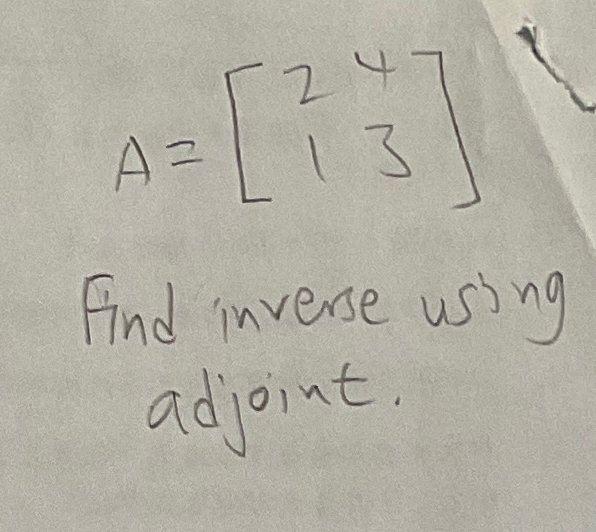 2 4
A = [ 1 3 ]
Find inverse using
adjoint.